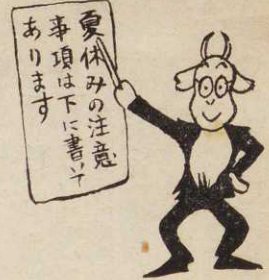 夏休みの注意
事項は下に書いて
あります